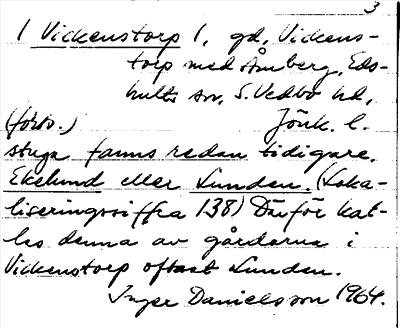 3
1 Vickenstorp 1, gd, Vickens-
torp med Åmberg, Eds-
hults sn, S. Vedbo hd,
(forts.) Jönk. l.
stuga fanns redan tidigare.
Ekelund eller Lunden. (Loka-
liseringssiffra 138) Därför kal-
las denna av gårdarna i
Vickenstorp oftast Lunden.
Inger Danielsson 1964.